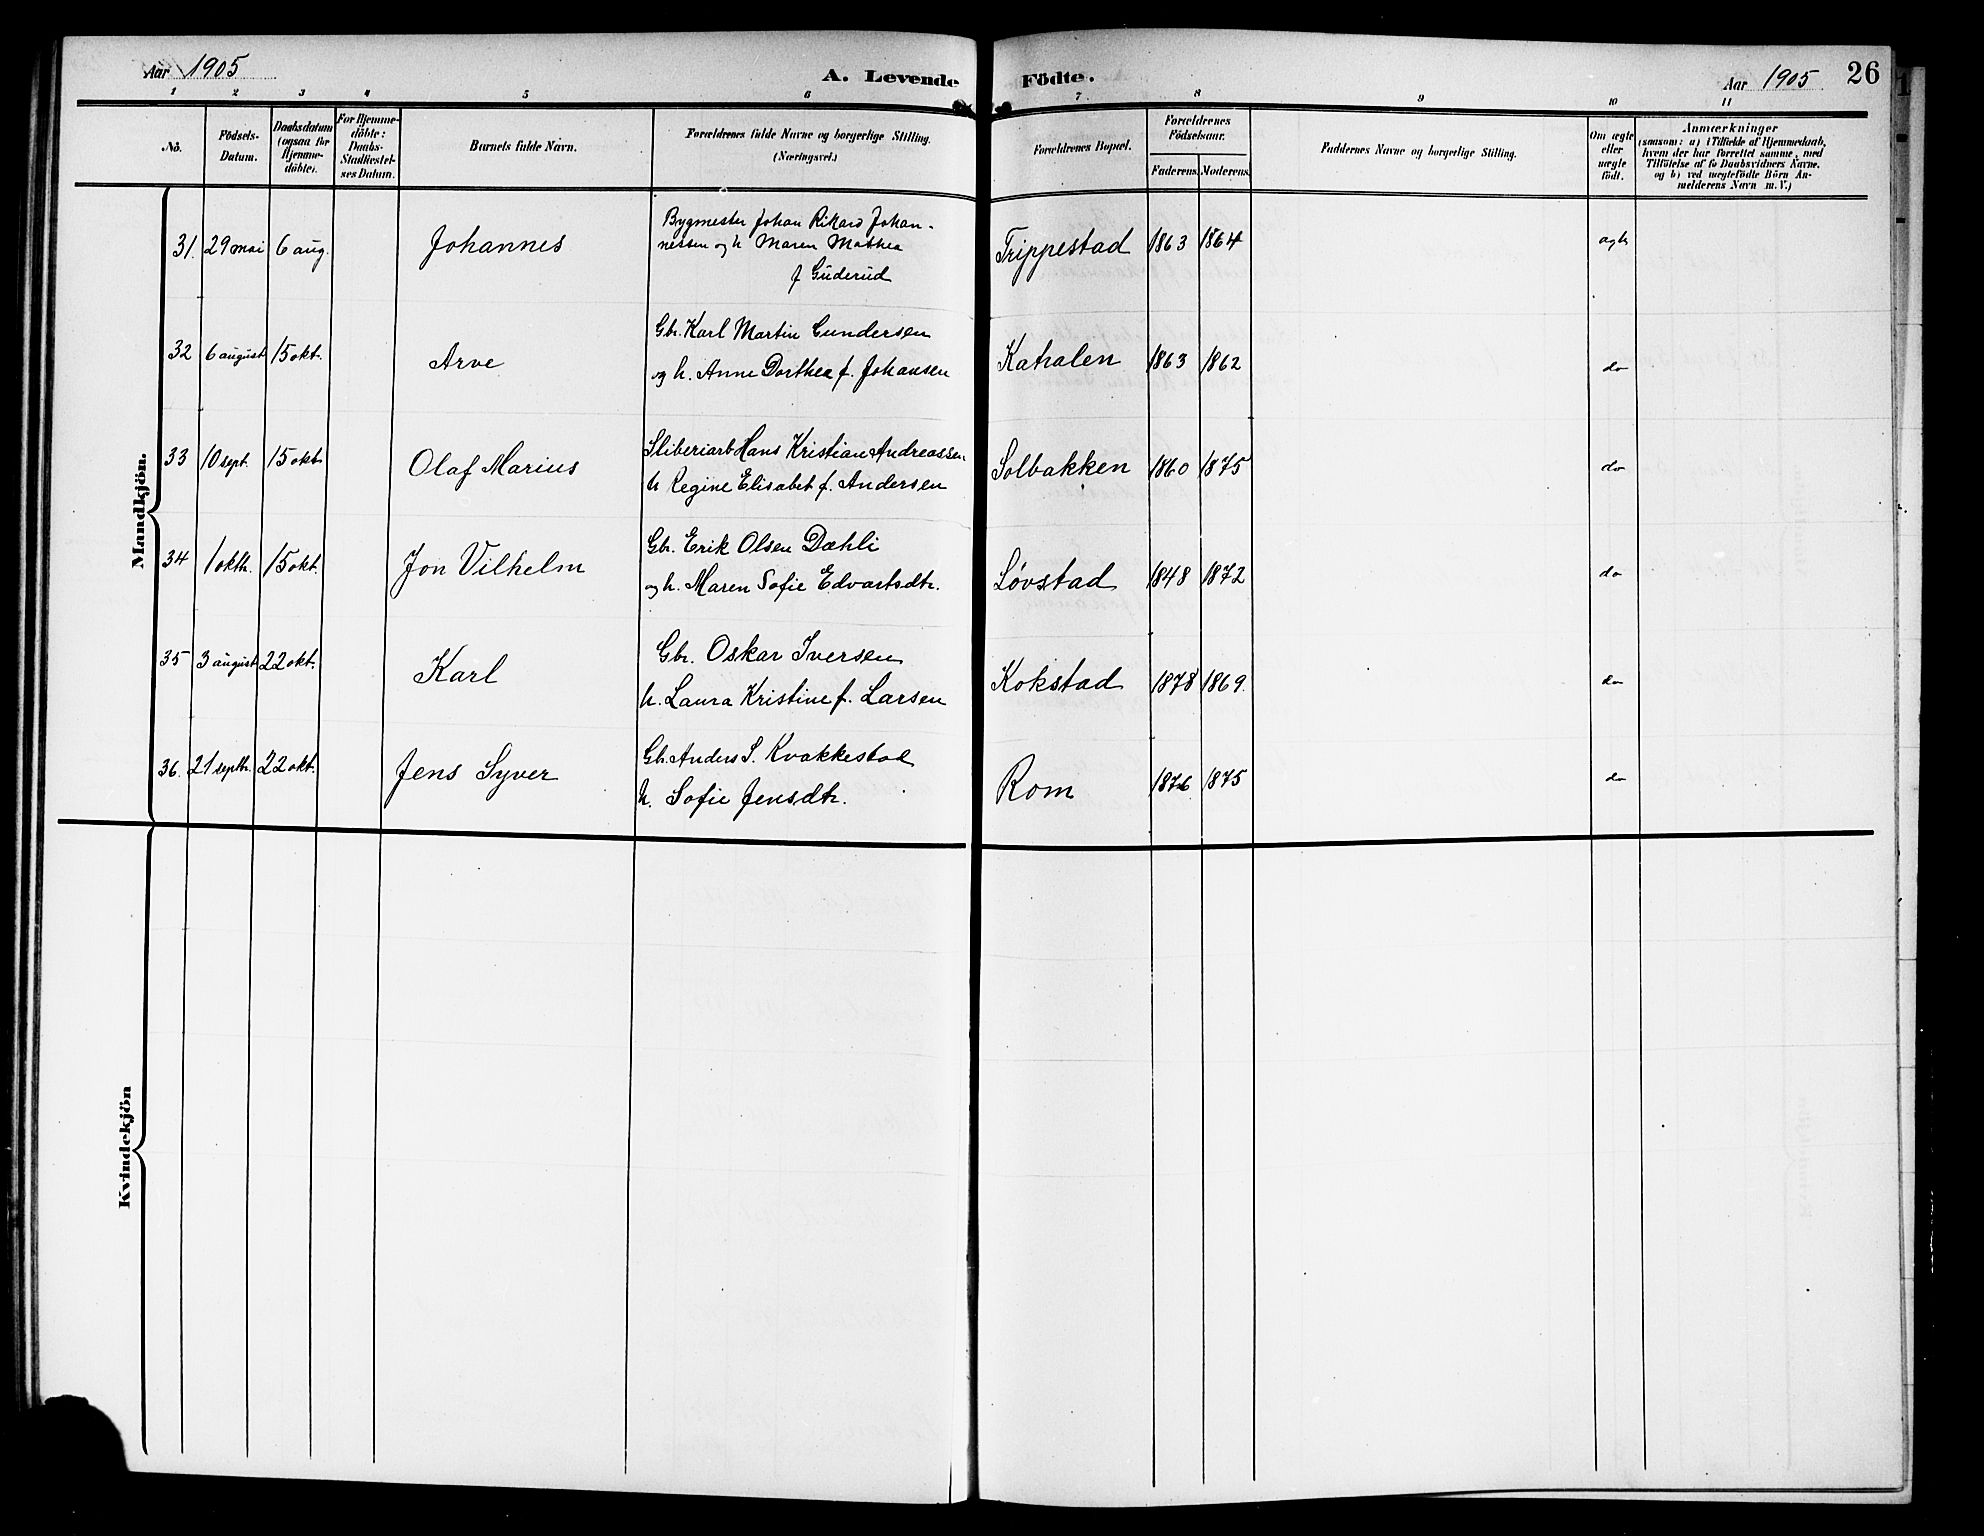 Aar 1905
A. Levende Födte.
Aar 1905
26
1 2 3 4 5 6 7 8 9 10 11
No.
Födsels-Datum.
Daabsdatum (ogsaa for Hjemme-döbte).
For Hjemme-döbte: Daabs-Stadfæstel-ses Datum.
Barnets fulde Navn.
Forældrenes fulde Navne og borgerlige Stilling. (Næringsvei.)
Forældrenes Bopæl.
Forældrenes Födselsaar.
Faderens. Moderens.
Faddernes Navne og borgerlige Stilling.
Om ægte eller uægte födt.
Anmærkninger
(saasom: a) i Tilfælde af Hjemmedaab,
hvem der har forrettet samme, med
Tilföielse af to Daabsvidners Navne.
og b) ved uægtefödte Börn An-
melderens Navn m. V.)
Mandkjön.
31. 29 mai 6 aug. Johannes Bygmester Johan Rikard Johan-
nessen og h Maren Mathea
f Guderud Trippestad 1863 1864 ægte
32 6 august 15 okt. Arve Gbr. Karl Martin Gundersen
og h. Anne Dorthea f. Johansen Katralen 1863 1862 do
33 10 sept. 15 okt Olaf Marius Sliberiarb Hans Kristian Andreassen
h Regine Elisabet f. Andersen Solbakken 1860 1875 do
34 1 oktb. 15 okt. Jon Vilhelm Gbr. Erik Olsen Dæhli
og h. Maren Sofie Edvartsdtr. Løvstad 1848 1872 do
35 3 august 22 okt. Karl Gbr. Oskar Iversen
h. Laura Kristine f. Larsen Kokstad 1878 1869. do
36. 21 septb. 22 okt. Jens Syver Gb. Anders S. Kvakkestad
h. Sofie Jensdtr. Rom 1876 1875 do
Kvindekjön